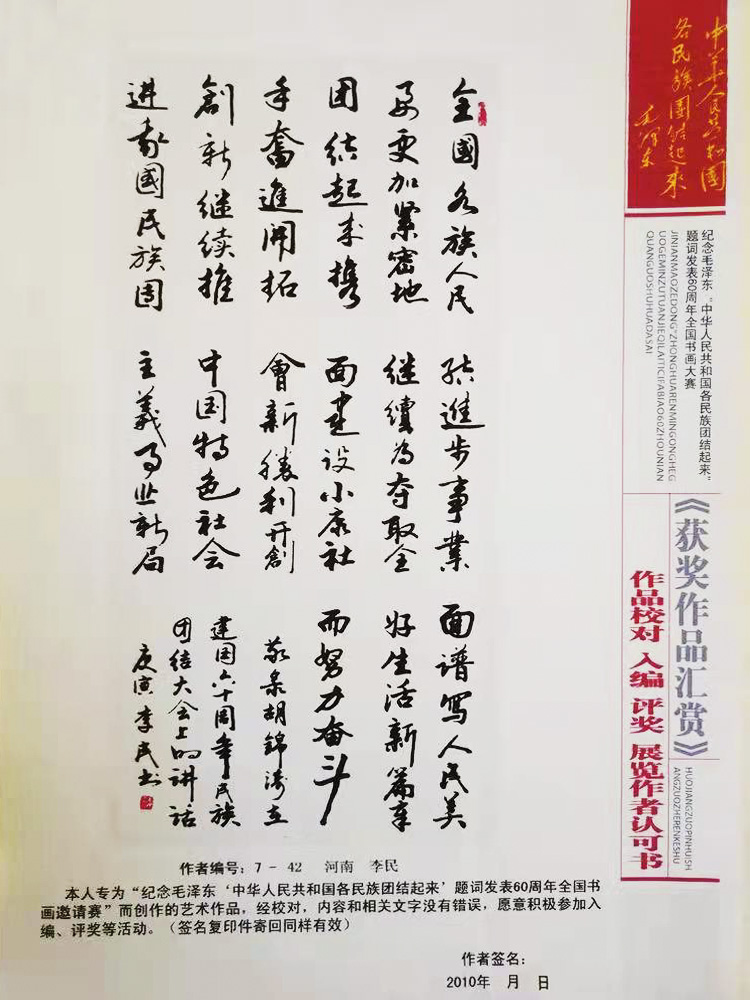 全國各族人民
要更加緊密地
团结起来携
手奮進開拓
創新继续推
進我國民族团
结進步事業
继續为夺取全
面建设小康社
會新勝利开創
中国特色社会
主義事业新局
面谱写人民美
好生活新篇章
而努力奋斗
敬录胡錦涛在
建国六十周年民族
团结大会上的讲话
庚寅李民书
中华人民共和国
各民族團结起来
毛泽东
纪念毛泽东“中华人民共和国各民族团结起来”
题词发表60周年全国书画大赛
JINIANMAOZEDONG"ZHONGHUARENMINGONGHEG
UOGEMINZUTUANJIEQILAITICIFABIAO60ZHOUNIAN
QUANGUOSHUHUADASAI
《获奖作品汇赏》
作品校对 入编 评奖 展览作者认可书
HUOJIANGZUOPINHUISH
ANGZUOZHERENKESHU
作者编号：7－42 河南 李民
本人专为“纪念毛泽东‘中华人民共和国各民族团结起来’题词发表60周年全国书
画邀请赛”而创作的艺术作品，经校对，内容和相关文字没有错误，愿意积极参加入
编、评奖等活动。（签名复印件寄回同样有效）
作者签名：
2010年 月 日